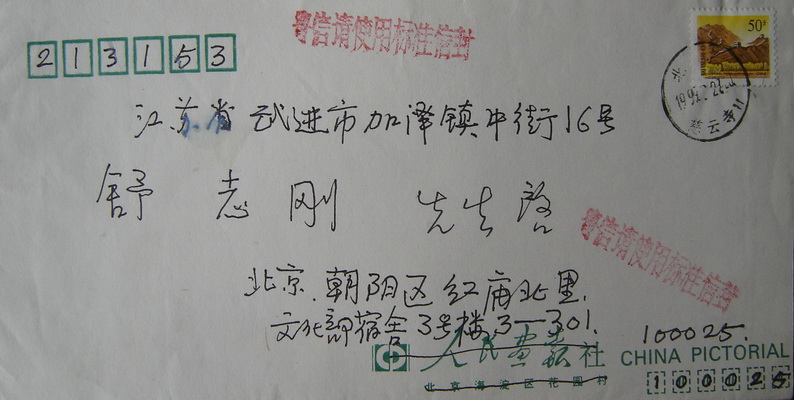 寄信请使用标准信封
213153
50分
北
1999.2.26
慈云寺
江苏省武进市加泽镇中街16号
舒志刚 先生启
寄信请使用标准信封
北京.朝阳区红庙北里.
文化部宿舍3号楼.3-301.
100025.
人民画报社 CHINA PICTORIAL
北京海淀区花园村
100025